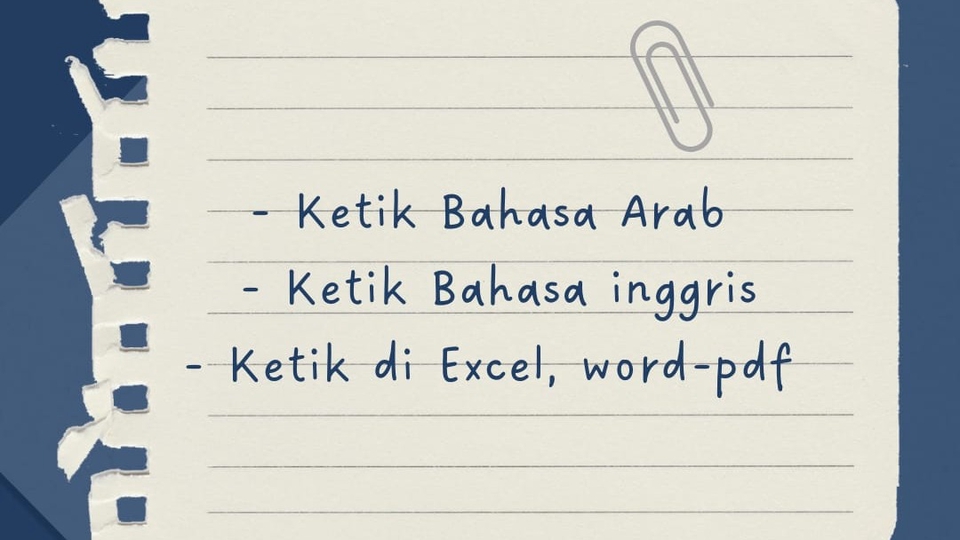 - Ketik Bahasa Arab
- Ketik Bahasa inggris
- Ketik di Excel, word-pdf